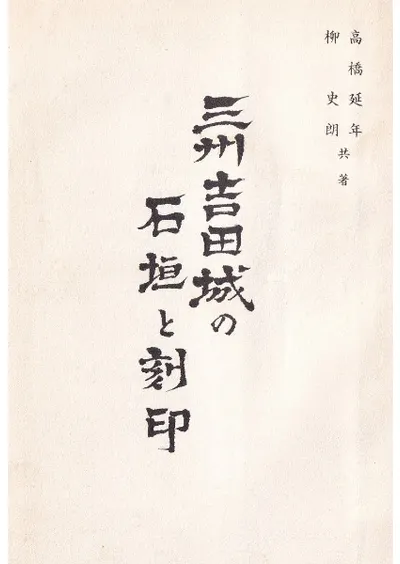 高橋延年
柳史朗共著
三州吉田城の
石垣と刻印